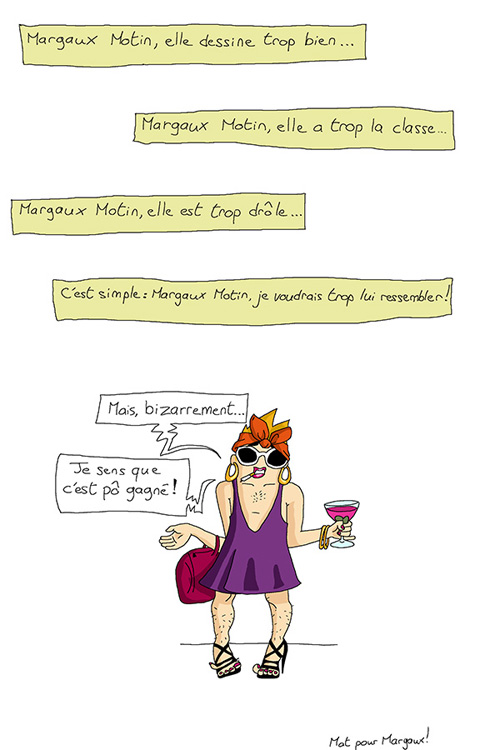 Margaux Motin, elle dessine trop bien...
Margaux Motin, elle a trop la classe...
Margaux Motin, elle est trop drôle...
C'est simple : Margaux Motin, je voudrais trop lui ressembler!
Mais, bizarrement...
Je sens que
c'est pô gagné!
Mat pour Margaux!